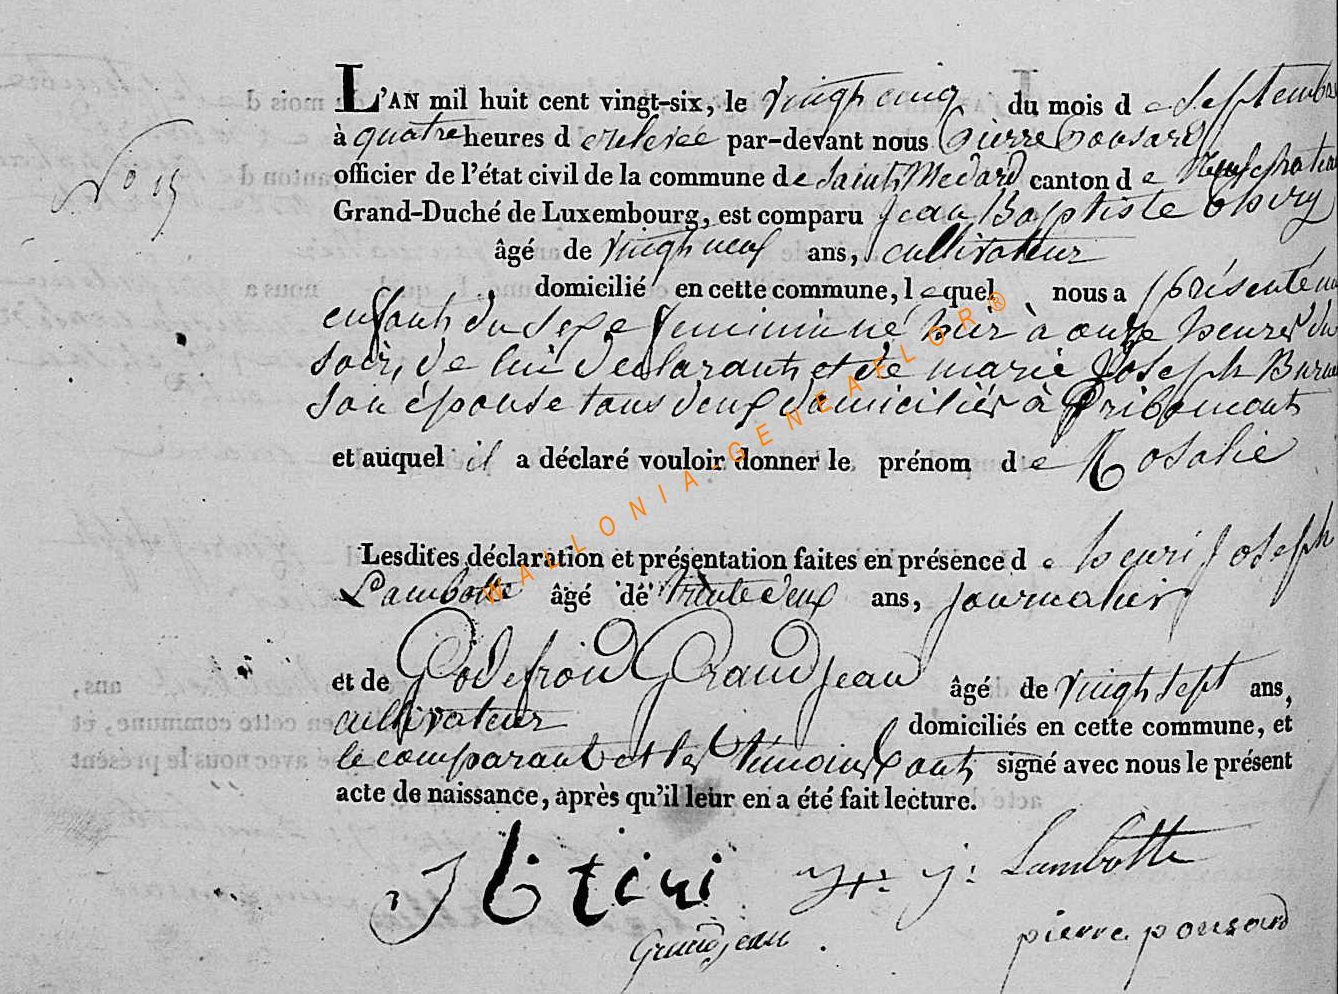 L'AN mil huit cent vingt-six, le vingt cinq du mois de septembre
à quatre heures de relevée par-devant nous Pierre Pousard
officier de l'état civil de la commune de Saint Medard canton de Neufchateau
Grand-Duché de Luxembourg, est comparu Jean Baptiste
âgé de vingt neuf ans, cultivateur
domicilié en cette commune, lequel nous a présenté un
enfant du sexe feminin né hier à onze heures du
soir, de lui declarant et de marie Joseph
son épouse tous deux domiciliés à Gribomont
et auquel il a déclaré vouloir donner le prénom de Rosalie
Lesdites déclaration et présentation faites en présence de henri Joseph
Lambotte âgé de trente deux ans, Journalier
et de Godefroid Grandjean âgé de vingt sept ans,
cultivateur domiciliés en cette commune, et
le comparant et les témoins ont signé avec nous le présent
acte de naissance, après qu'il leur en a été fait lecture.
Lambotte
Grandjean
pierre pousard
WALLONIA GENEAFLOR®